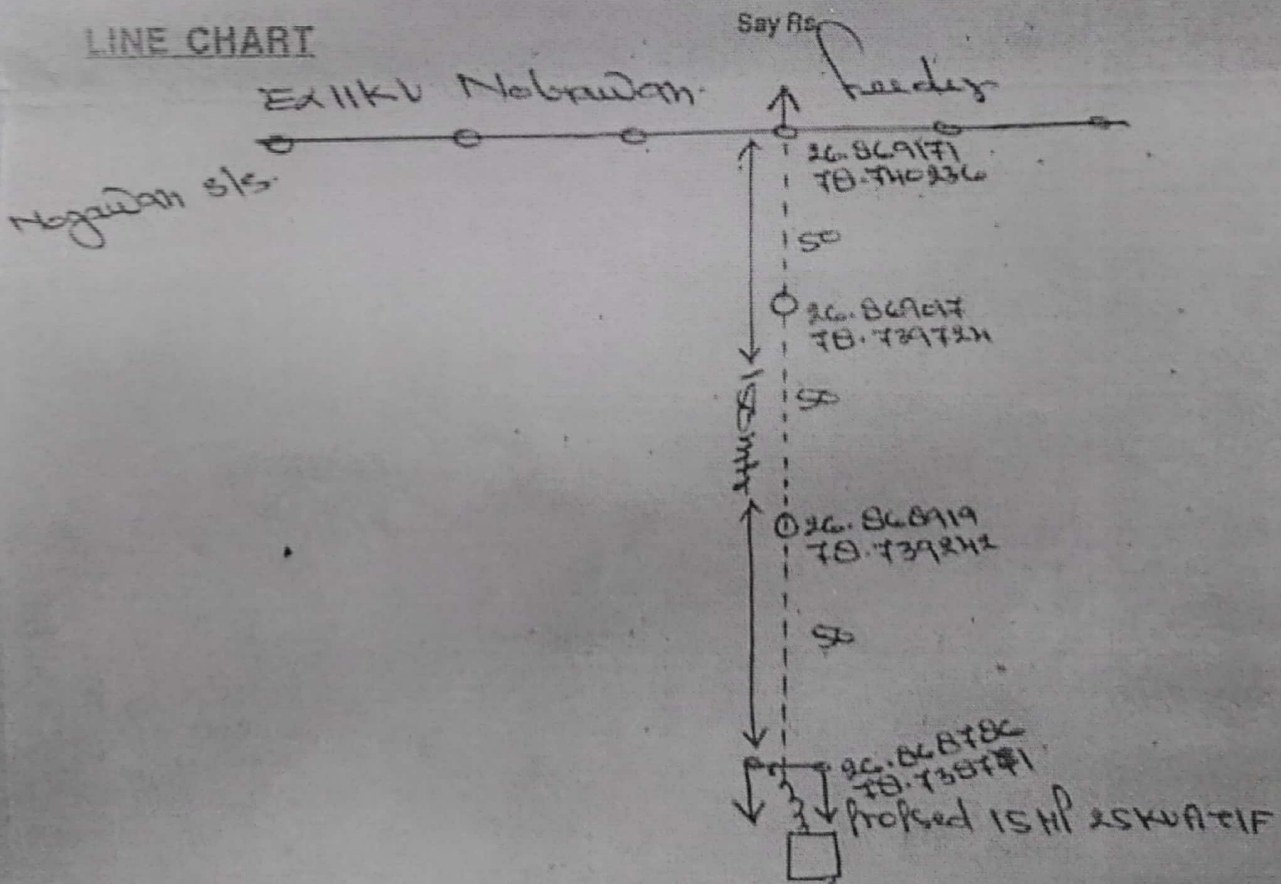 LINE CHART
Say Rs.
Ex 11KV feeder
s/s.
26.869171
78.740236
50
26.869017
78.739724
50
150mtr
26.868919
78.739242
50
26.868786
Propsed 15 HP 25KVA T/F